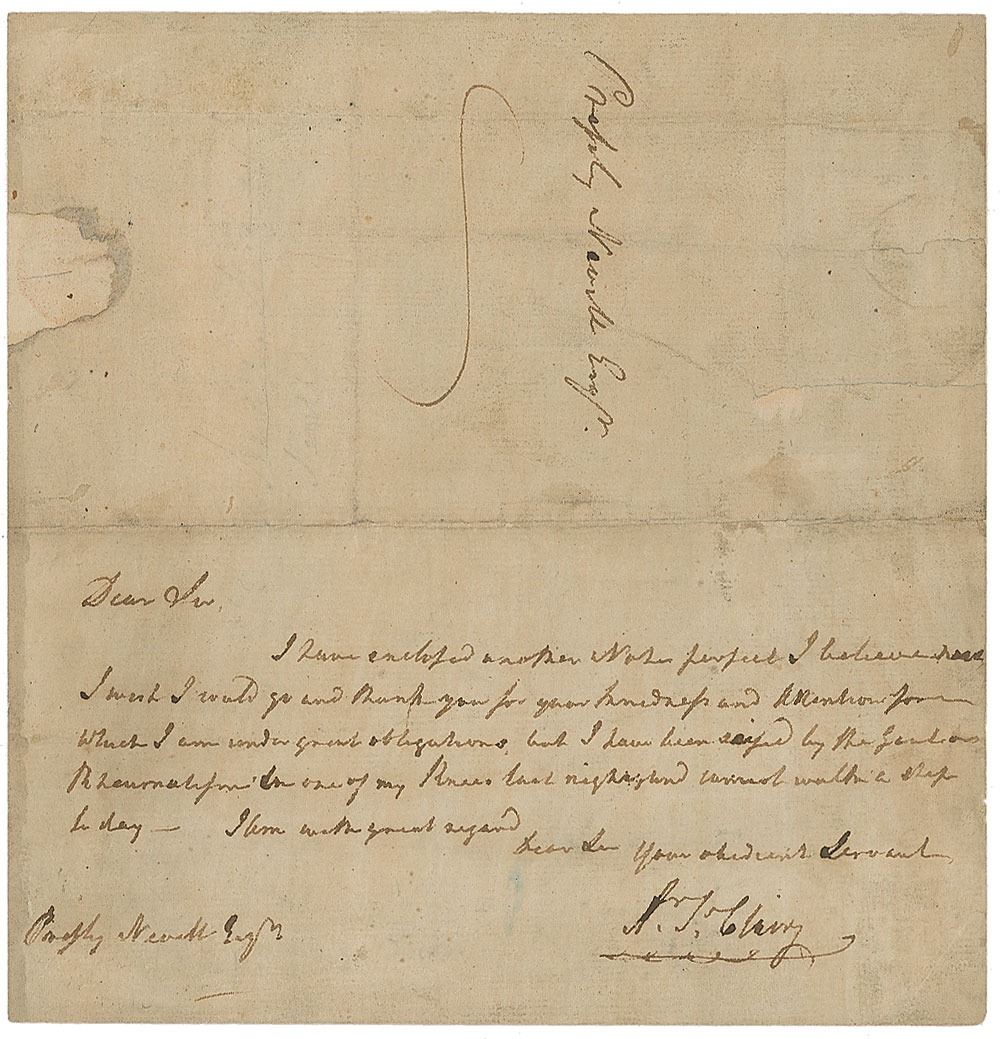 Presly Nevill Esqr.
Dear Sir,
I have enclosed another Note perfect I believe
I wish I could go and thank you for your kindness and Attention for
which I am under great obligations, but I have been seized by the Gout or
Rheumatism in one of my Knees last night, and cannot walk a step
to day — I am with great regard
Dear Sir Your obedient Servant
Ar. St. Clair
Presly Nevill Esqr